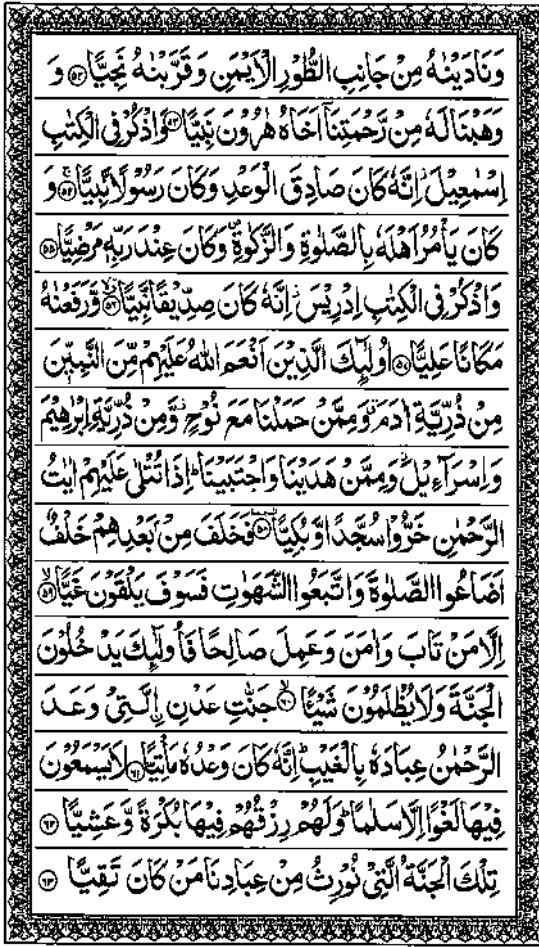 وَنَادَيْنٰهُ مِنْ جَانِبِ الطُّوْرِ الْاَيْمَنِ وَقَرَّبْنٰهُ نَجِيًّا ۝۵۲ وَ
وَهَبْنَا لَهٗ مِنْ رَّحْمَتِنَاۤ اَخَاهُ هٰرُوْنَ نَبِيًّا ۝۵۳ وَاذْكُرْ فِى الْكِتٰبِ
اِسْمٰعِيْلَ ؗ اِنَّهٗ كَانَ صَادِقَ الْوَعْدِ وَكَانَ رَسُوْلًا نَّبِيًّا ۝۵۴ وَ
كَانَ يَاْمُرُ اَهْلَهٗ بِالصَّلٰوةِ وَالزَّكٰوةِ ۪ وَكَانَ عِنْدَ رَبِّهٖ مَرْضِيًّا ۝۵۵
وَاذْكُرْ فِى الْكِتٰبِ اِدْرِيْسَ ؗ اِنَّهٗ كَانَ صِدِّيْقًا نَّبِيًّا ۝۵۶ وَّرَفَعْنٰهُ
مَكَانًا عَلِيًّا ۝۵۷ اُولٰٓئِكَ الَّذِيْنَ اَنْعَمَ اللّٰهُ عَلَيْهِمْ مِّنَ النَّبِيّٖنَ
مِنْ ذُرِّيَّةِ اٰدَمَ ۗ وَمِمَّنْ حَمَلْنَا مَعَ نُوْحٍ ؗ وَّمِنْ ذُرِّيَّةِ اِبْرٰهِيْمَ
وَاِسْرَآءِيْلَ ؗ وَمِمَّنْ هَدَيْنَا وَاجْتَبَيْنَا ؕ اِذَا تُتْلٰى عَلَيْهِمْ اٰيٰتُ
الرَّحْمٰنِ خَرُّوْا سُجَّدًا وَّبُكِيًّا ۝۵۸ فَخَلَفَ مِنْ بَعْدِهِمْ خَلْفٌ
اَضَاعُوا الصَّلٰوةَ وَاتَّبَعُوا الشَّهَوٰتِ فَسَوْفَ يَلْقَوْنَ غَيًّا ۝۵۹
اِلَّا مَنْ تَابَ وَاٰمَنَ وَعَمِلَ صَالِحًا فَاُولٰٓئِكَ يَدْخُلُوْنَ
الْجَنَّةَ وَلَا يُظْلَمُوْنَ شَيْـًٔا ۝۶۰ جَنّٰتِ عَدْنِ ِ۟الَّتِىْ وَعَدَ
الرَّحْمٰنُ عِبَادَهٗ بِالْغَيْبِ ؕ اِنَّهٗ كَانَ وَعْدُهٗ مَاْتِيًّا ۝۶۱ لَا يَسْمَعُوْنَ
فِيْهَا لَغْوًا اِلَّا سَلٰمًا ؕ وَلَهُمْ رِزْقُهُمْ فِيْهَا بُكْرَةً وَّعَشِيًّا ۝۶۲
تِلْكَ الْجَنَّةُ الَّتِىْ نُوْرِثُ مِنْ عِبَادِنَا مَنْ كَانَ تَقِيًّا ۝۶۳